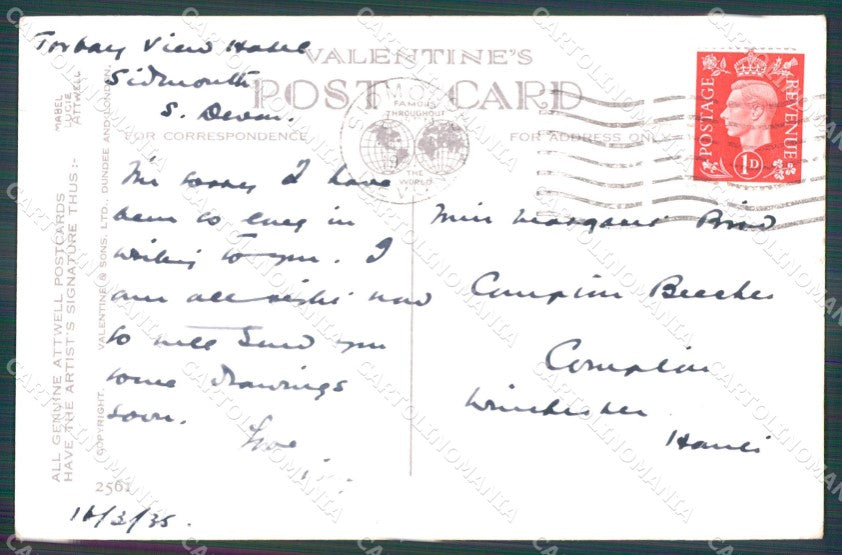 Torbay View Hotel
Sidmouth
S. Devon.
VALENTINE'S
POST CARD
FOR CORRESPONDENCE
FOR ADDRESS ONLY
FAMOUS
THROUGHOUT
THE
WORLD
POSTAGE
REVENUE
1D
I'm sorry I have
been so long in
writing to you. I
am all right now
so will send you
some drawings
soon.
Love
Miss Margaret Bird
Compton Beeches
Compton
Winchester
Hants
MABEL
LUCIE
ATTWELL
ALL GENUINE ATTWELL POSTCARDS
HAVE THE ARTIST'S SIGNATURE THUS:-
COPYRIGHT. VALENTINE & SONS. LTD., DUNDEE AND LONDON.
2561
CARTOLINOMANIA